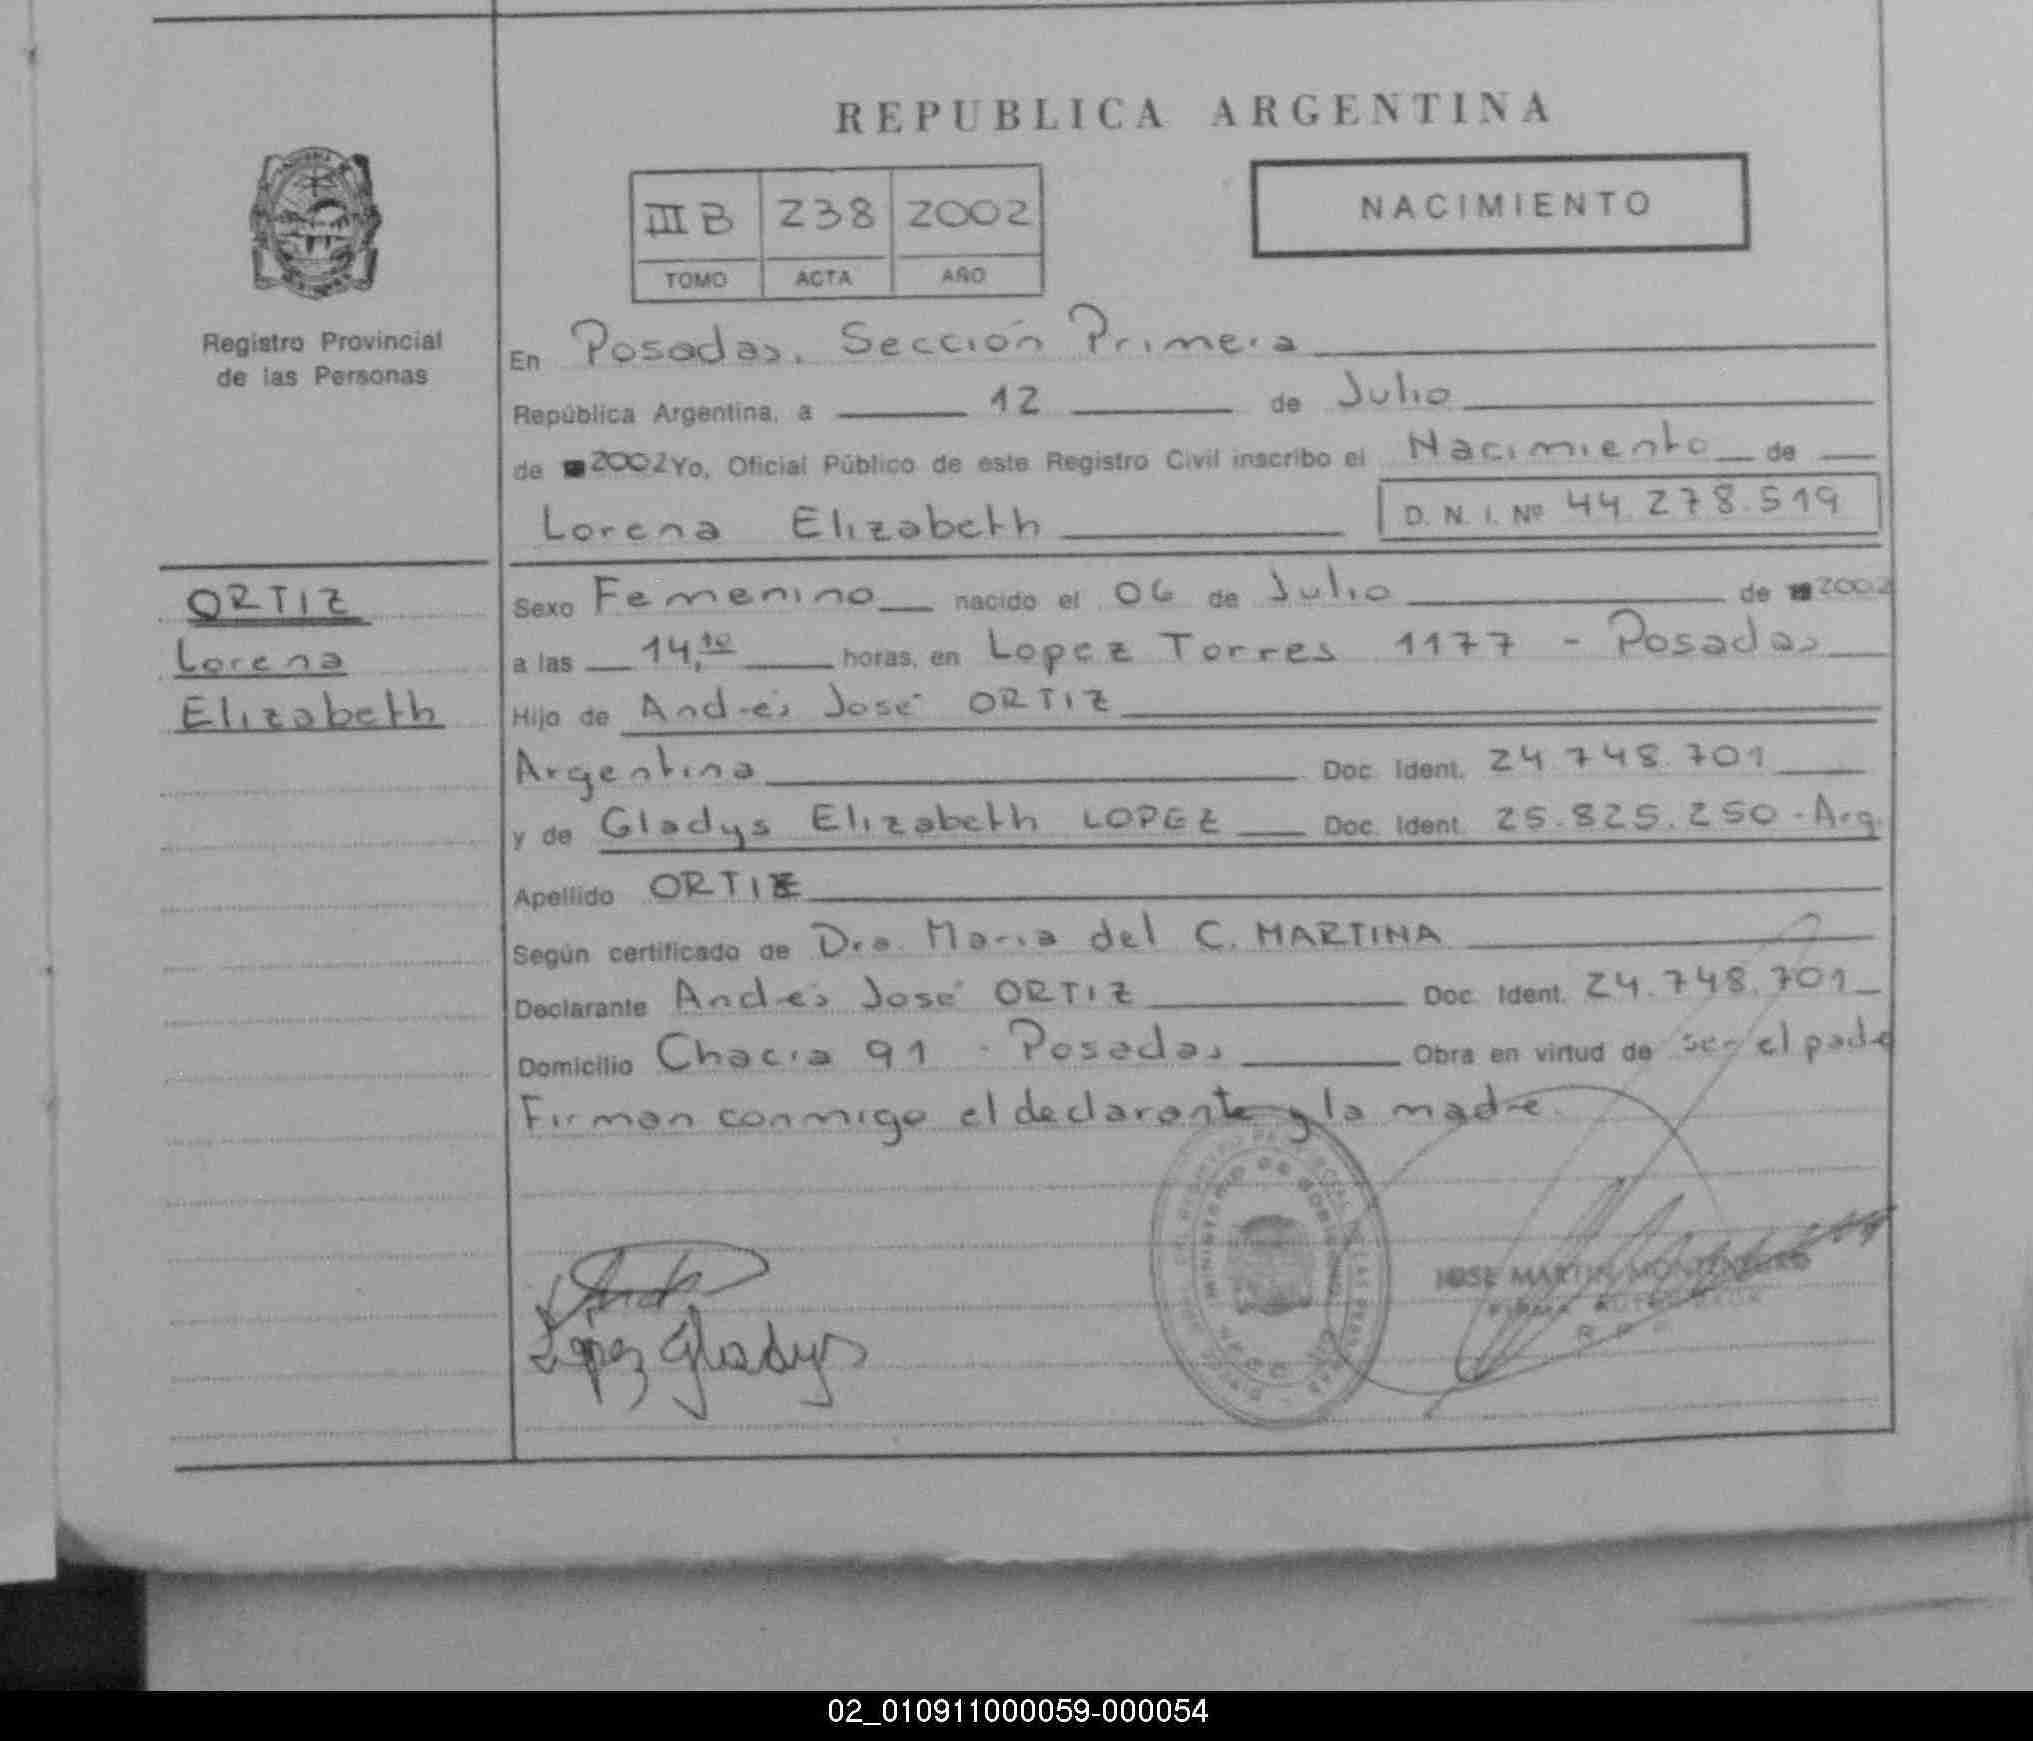 REPUBLICA ARGENTINA
III B 238 2002
TOMO ACTA AÑO
NACIMIENTO
Registro Provincial
de las Personas
En Posadas, Sección Primera
República Argentina, a 12 de Julio
de 2002 Yo, Oficial Público de este Registro Civil inscribo el Nacimiento de
Lorena Elizabeth D. N. I. Nº 44.278.519
ORTIZ
Lorena
Elizabeth
Sexo Femenino nacido el 06 de Julio de 2002
a las 14,10 horas, en Lopez Torres 1177 - Posadas
Hijo de Andrés José ORTIZ
Argentina Doc. Ident. 24.748.701
y de Gladys Elizabeth LOPEZ Doc. Ident. 25.825.250 - Arg.
Apellido ORTIZ
Según certificado de Dra. Maria del C. MARTINA
Declarante Andrés José ORTIZ Doc. Ident. 24.748.701
Domicilio Chacra 91 - Posadas Obra en virtud de ser el padre
Firman conmigo el declarante y la madre.
MINISTERIO DE GOBIERNO
JOSE MARTIN
López Gladys
02_010911000059-000054